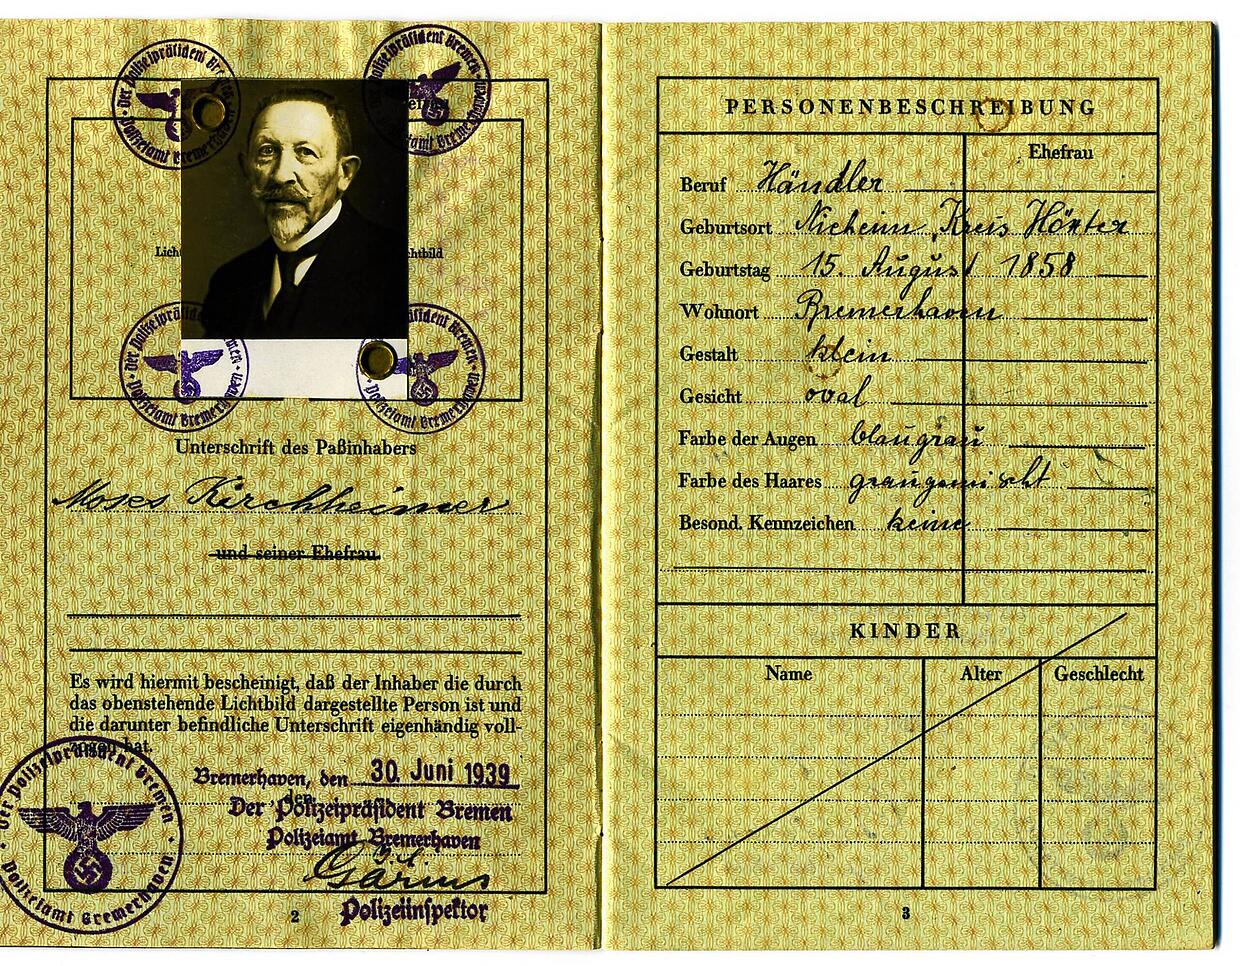 Der Polizeipräsident Bremen
Polizeiamt Bremerhaven
Der Polizeipräsident Bremen
Polizeiamt Bremerhaven
Lich
chtbild
Der Polizeipräsident Bremen
Polizeiamt Bremerhaven
Der Polizeipräsident Bremen
Polizeiamt Bremerhaven
Unterschrift des Paßinhabers
Moses Kirchheimer
und seiner Ehefrau
Es wird hiermit bescheinigt, daß der Inhaber die durch
das obenstehende Lichtbild dargestellte Person ist und
die darunter befindliche Unterschrift eigenhändig voll-
zogen hat.
Bremerhaven, den 30. Juni 1939
Der Polizeipräsident Bremen
Polizeiamt Bremerhaven
Polizeiinspektor
Der Polizeipräsident Bremen
Polizeiamt Bremerhaven
2
PERSONENBESCHREIBUNG
Ehefrau
Beruf Händler
Geburtsort Nieheim, Kreis Höxter
Geburtstag 15. August 1858
Wohnort Bremerhaven
Gestalt klein
Gesicht oval
Farbe der Augen blaugrau
Farbe des Haares graugemischt
Besond. Kennzeichen keine
KINDER
Name Alter Geschlecht
3